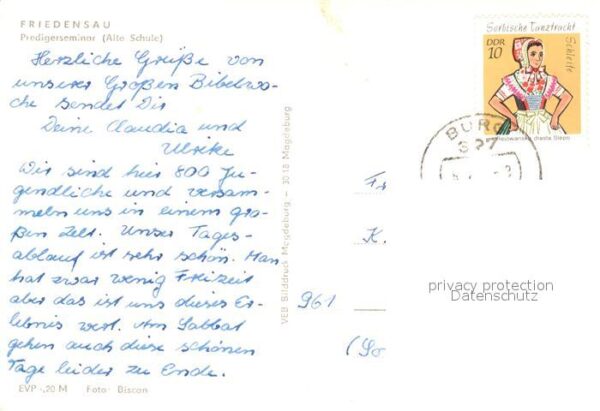 FRIEDENSAU
Predigerseminar (Alte Schule)
Herzliche Grüße von
unserer Großen Bibelwo-
che sendet Dir
Deine Claudia und
Ulrike
Wir sind hier 800 Ju-
gendliche und versam-
meln uns in einem gro-
ßen Zelt. Unser Tages-
ablauf ist sehr schön. Man
hat zwar wenig Freizeit
aber das ist uns dieses Er-
lebnis wert. Am Sabbat
gehen auch diese schönen
Tage leider zu Ende.
EVP -,20 M Foto: Biscan
VEB Bilddruck Magdeburg – 3018 Magdeburg
Sorbische Tanztracht
Schleife
DDR
10
BURG
327
Fr
K.
961
(So
privacy protection
Datenschutz